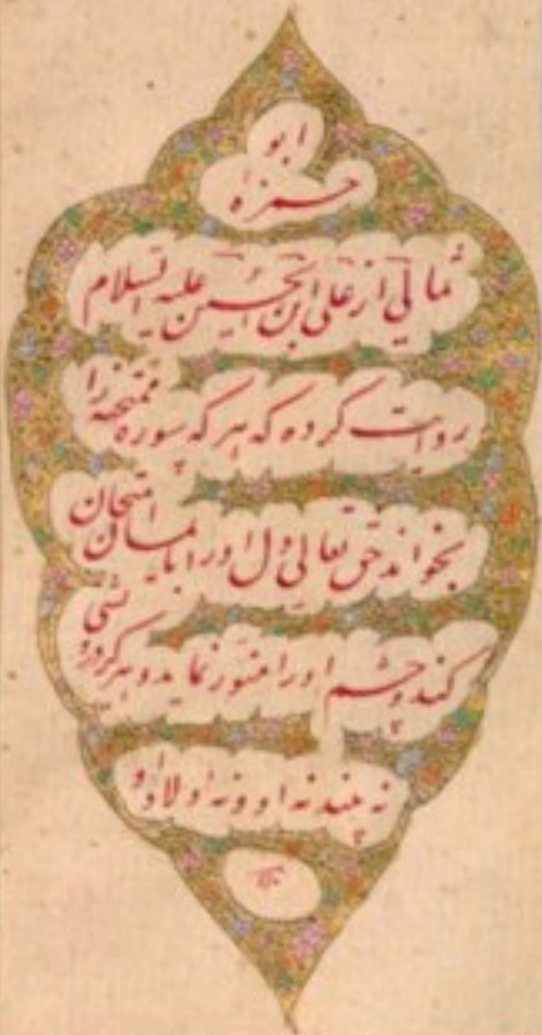 ابو
حمزه
ثمالی از علی ابن الحسین علیه السلام
روایت کرده که هر که سوره ممتحنه را
بخواند حق تعالی دل او را بایمان امتحان
کند و چشم او را منور نماید و هرگز درویشی
نه بیند نه او و نه اولاد او